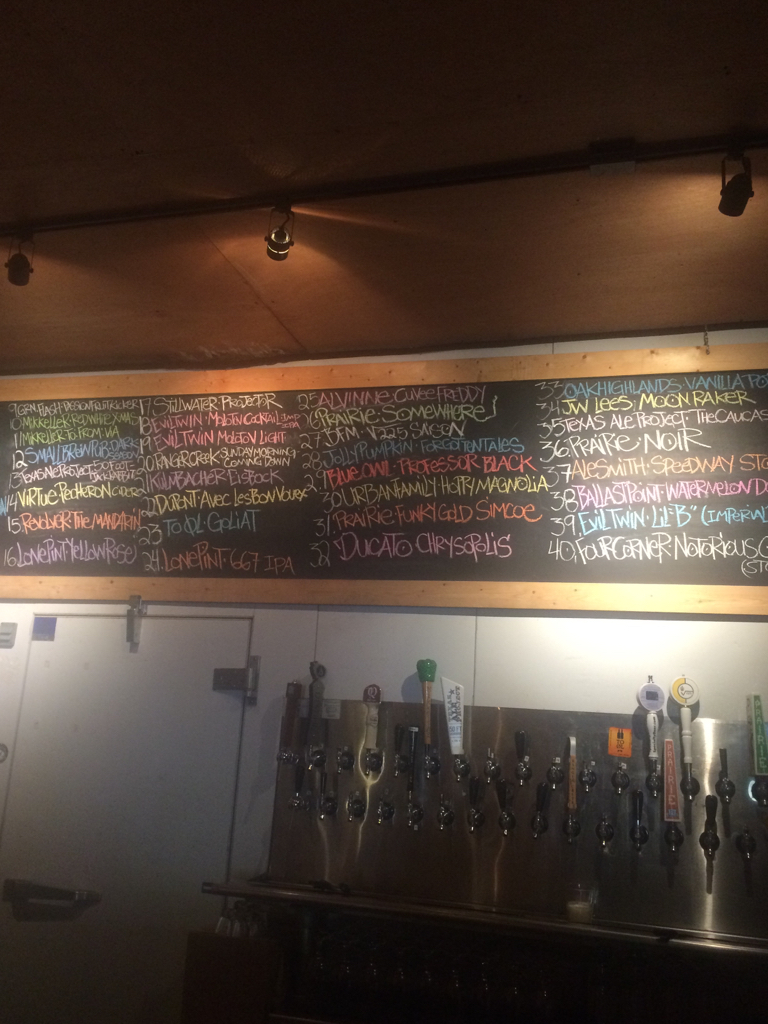 9. GRN FLASH
10. MIKKELLER RED WHITE XMAS
11. MIKKELLER TO FROM VIA
12. SMALL BREW PUB DARK
SEASON
13. TEXAS ALE PROJECT 50 FOOT
JACKRABBIT
14. VIRTUE PERCHERON CIDER
15. REVOLVER THE MANDARIN
16. LONE PINT YELLOW ROSE
17. STILLWATER PROJECTOR
18. EVIL TWIN MOLOTOV COCKTAIL
19. EVIL TWIN MOLOTOV LIGHT
20. RANGER CREEK SUNDAY MORNING
COMING DOWN
21. KULMBACHER EISBOCK
22. DUPONT AVEC LES BON VOEUX
23. TO ØL GOLIAT
24. LONE PINT 667 IPA
25. ALVINNE CUVEE FREDDY
26. PRAIRIE SOMEWHERE
27. V225 SAISON
28. JOLLY PUMPKIN FORGOTTEN TALES
29. BLUE OWL PROFESSOR BLACK
30. URBAN FAMILY HOPPY MAGNOLIA
31. PRAIRIE FUNKY GOLD SIMCOE
32. DUCATO CHRYSOPOLIS
33. OAK HIGHLANDS VANILLA PO
34. JW LEES MOON RAKER
35. TEXAS ALE PROJECT THE CAUCAS
36. PRAIRIE NOIR
37. ALESMITH SPEEDWAY STO
38. BALLAST POINT WATERMELON DO
39. EVIL TWIN LIL "B" (IMPERIAL
40. FOUR CORNER NOTORIOUS O
(STO
PRAIRIE
PRAIRIE